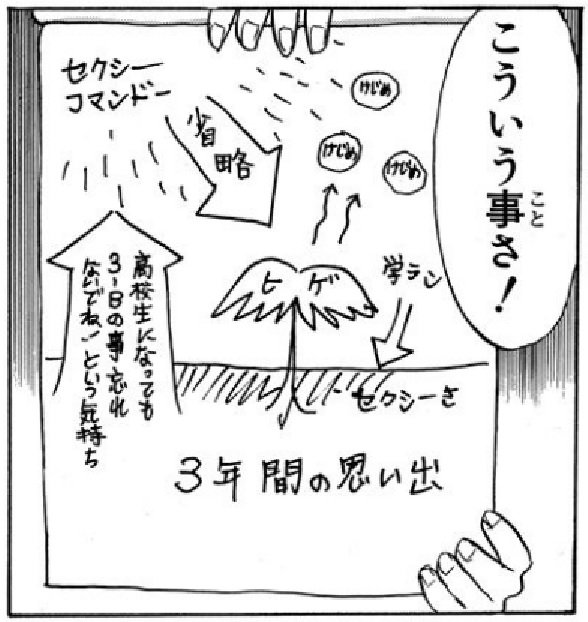 こういう事さ!
こと
セクシー
コマンドー
省略
けじめ
けじめ
けじめ
ヒゲ
学ラン
セクシーさ
高校生になっても
3-Bの事忘れ
ないでね!という気持ち
3年間の思い出